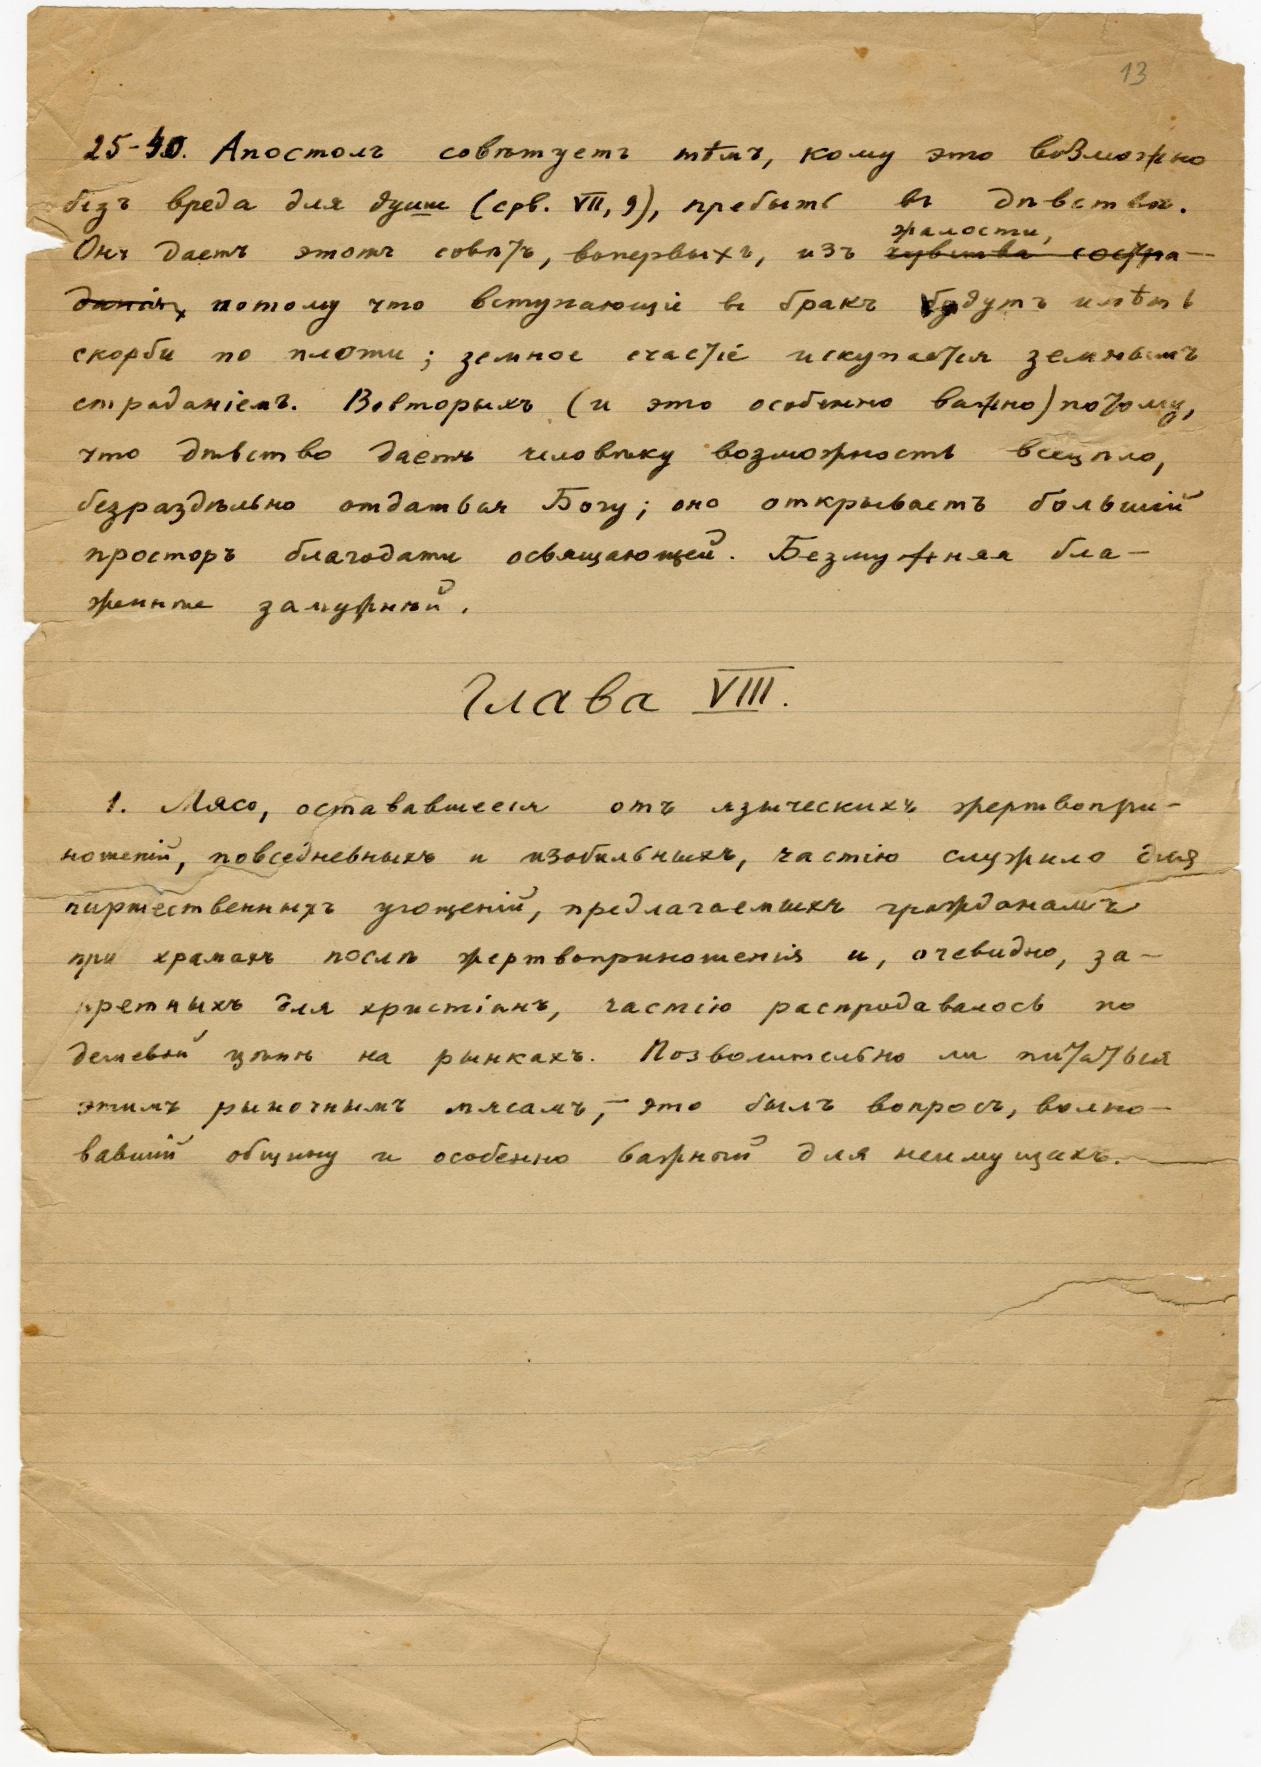 13
25-40. Апостолъ совѣтуетъ тѣмъ, кому это возможно
безъ вреда для души (срв. VII, 9), пребыть въ дѣвствѣ.
жалости,
Онъ даетъ этотъ совѣтъ, вопервыхъ, изъ чувства состра-
данія, потому что вступающіе въ бракъ будутъ имѣть
скорби по плоти; земное счастіе искупается земнымъ
страданіемъ. Вовторыхъ (и это особенно важно) потому,
что дѣвство даетъ человѣку возможность всецѣло,
безраздѣльно отдаться Богу; оно открываетъ большій
просторъ благодати освящающей. Безмужняя бла-
женнѣе замужней.
Глава VIII.
1. Мясо, остававшееся отъ языческихъ жертвопри-
ношеній, повседневныхъ и изобильныхъ, частію служило для
пиршественныхъ угощеній, предлагаемыхъ гражданамъ
при храмахъ послѣ жертвоприношенія и, очевидно, за-
претныхъ для христіанъ, частію распродавалось по
дешевой цѣнѣ на рынкахъ. Позволительно ли питаться
этимъ рыночнымъ мясамъ,- это былъ вопросъ, волно-
вавшій общину и особенно важный для неимущихъ.